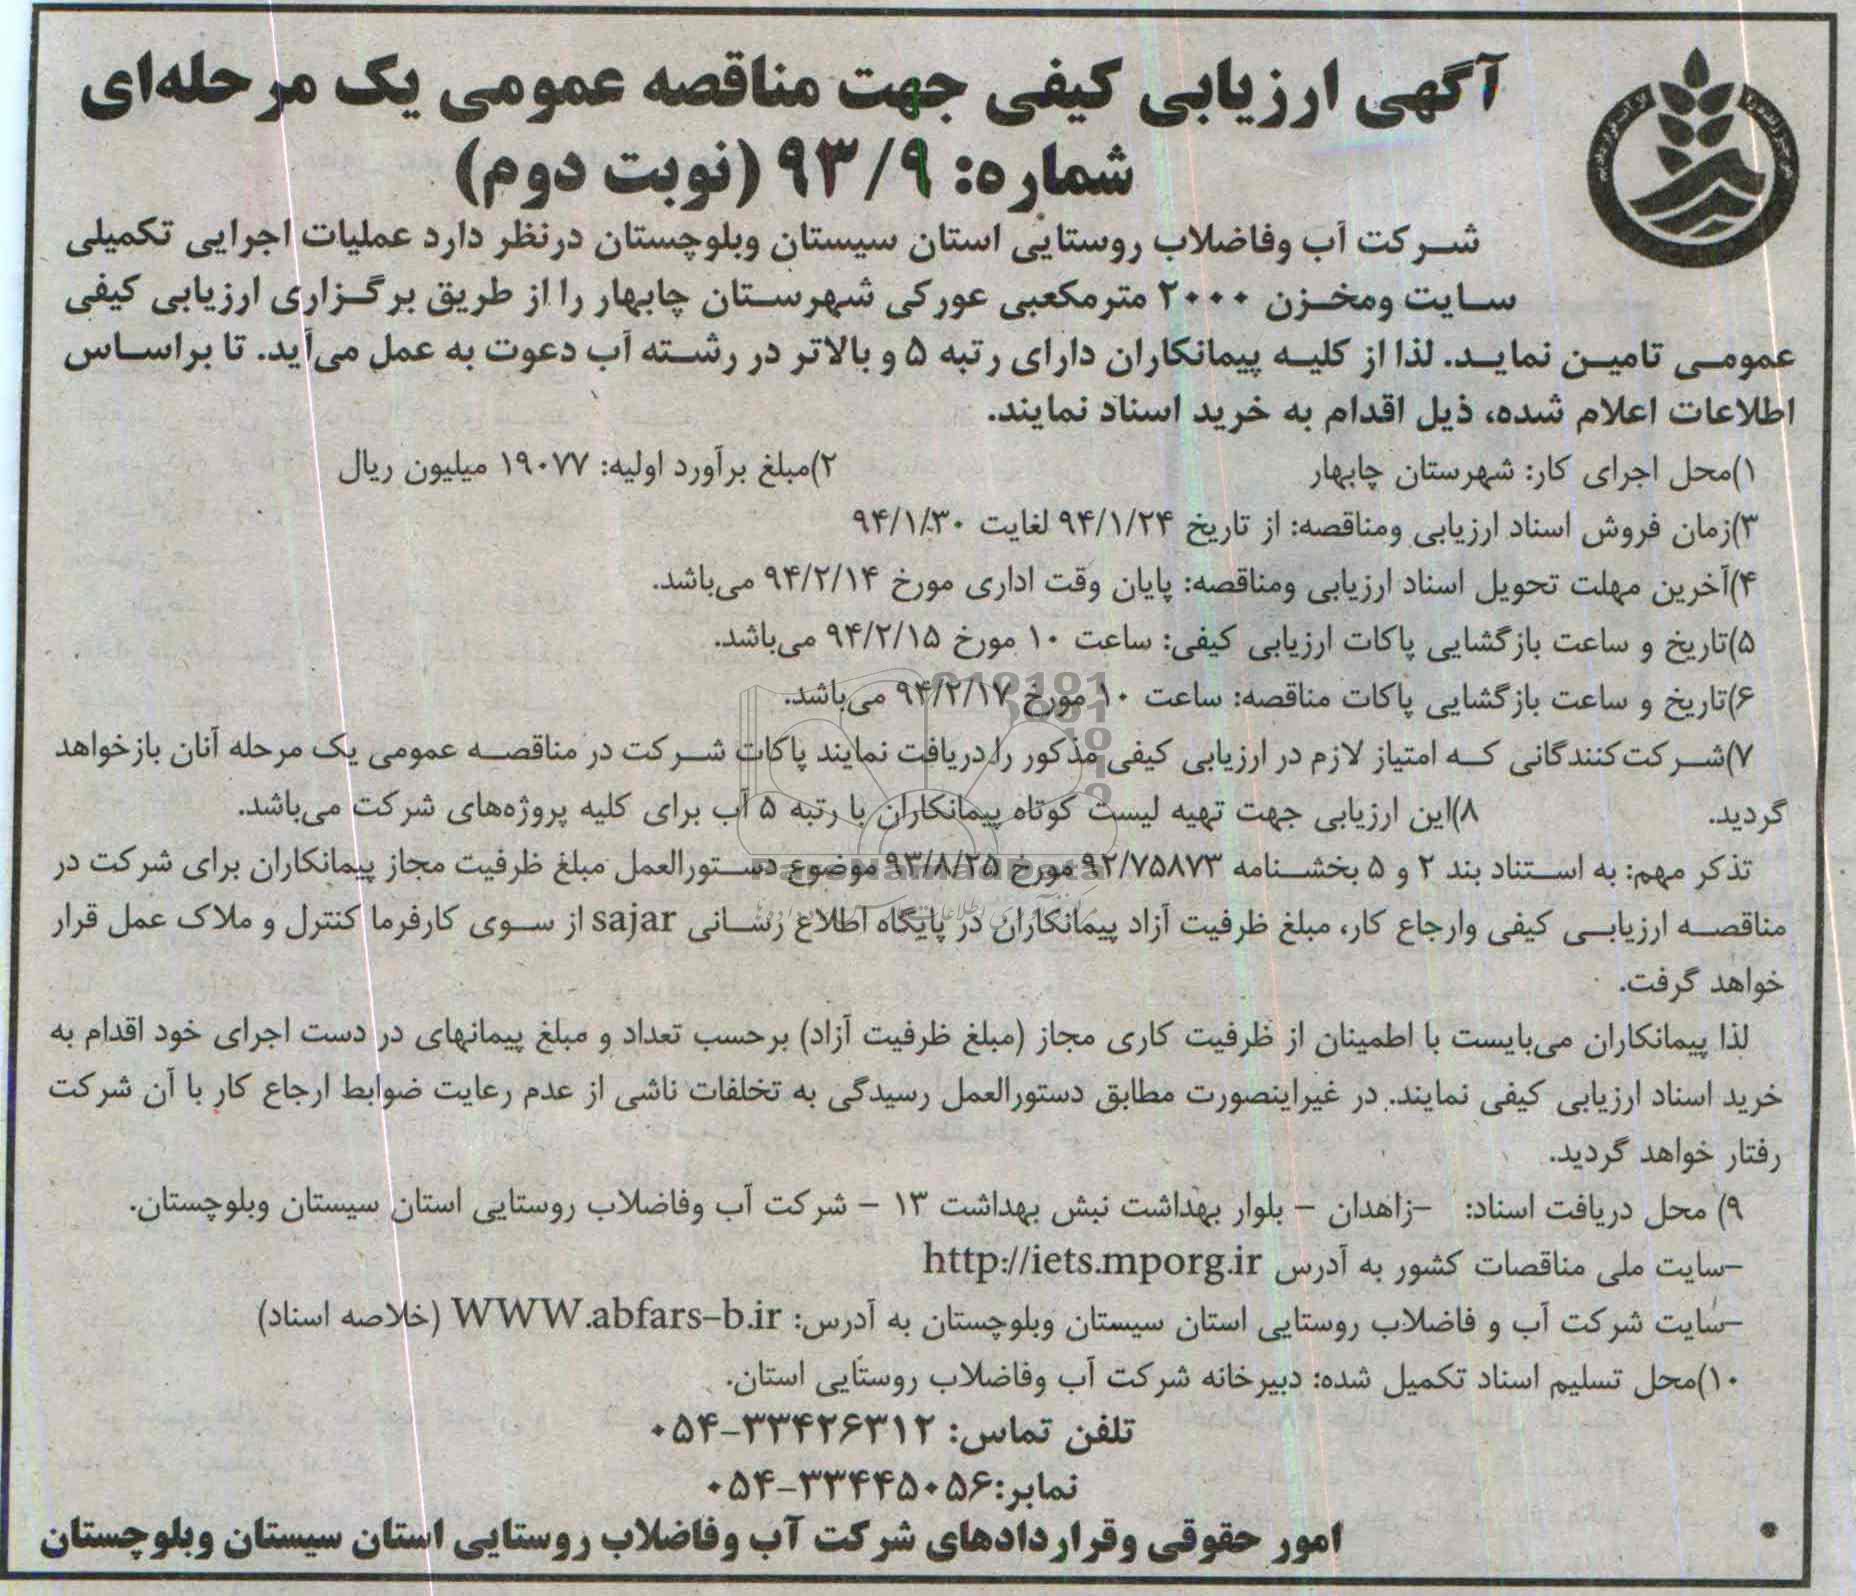 آگهی ارزیابی کیفی جهت مناقصه عمومی یک مرحله‌ای
شماره: ۹۳/۹ (نوبت دوم)
شرکت آب وفاضلاب روستایی استان سیستان وبلوچستان درنظر دارد عملیات اجرایی تکمیلی
سایت ومخزن ۲۰۰۰ مترمکعبی عورکی شهرستان چابهار را از طریق برگزاری ارزیابی کیفی
عمومی تامین نماید. لذا از کلیه پیمانکاران دارای رتبه ۵ و بالاتر در رشته آب دعوت به عمل می‌آید. تا براساس
اطلاعات اعلام شده، ذیل اقدام به خرید اسناد نمایند.
۱)محل اجرای کار: شهرستان چابهار ۲)مبلغ برآورد اولیه: ۱۹۰۷۷ میلیون ریال
۳)زمان فروش اسناد ارزیابی ومناقصه: از تاریخ ۹۴/۱/۲۴ لغایت ۹۴/۱/۳۰
۴)آخرین مهلت تحویل اسناد ارزیابی ومناقصه: پایان وقت اداری مورخ ۹۴/۲/۱۴ می‌باشد.
۵)تاریخ و ساعت بازگشایی پاکات ارزیابی کیفی: ساعت ۱۰ مورخ ۹۴/۲/۱۵ می‌باشد.
۶)تاریخ و ساعت بازگشایی پاکات مناقصه: ساعت ۱۰ مورخ ۹۴/۲/۱۷ می‌باشد.
۷)شرکت‌کنندگانی که امتیاز لازم در ارزیابی کیفی مذکور را دریافت نمایند پاکات شرکت در مناقصه عمومی یک مرحله آنان بازخواهد
گردید. ۸)این ارزیابی جهت تهیه لیست کوتاه پیمانکاران با رتبه ۵ آب برای کلیه پروژه‌های شرکت می‌باشد.
تذکر مهم: به استناد بند ۲ و ۵ بخشنامه ۹۲/۷۵۸۷۳ مورخ ۹۳/۸/۲۵ موضوع دستورالعمل مبلغ ظرفیت مجاز پیمانکاران برای شرکت در
مناقصه ارزیابی کیفی وارجاع کار، مبلغ ظرفیت آزاد پیمانکاران در پایگاه اطلاع رسانی sajar از سوی کارفرما کنترل و ملاک عمل قرار
خواهد گرفت.
لذا پیمانکاران می‌بایست با اطمینان از ظرفیت کاری مجاز (مبلغ ظرفیت آزاد) برحسب تعداد و مبلغ پیمانهای در دست اجرای خود اقدام به
خرید اسناد ارزیابی کیفی نمایند. در غیراینصورت مطابق دستورالعمل رسیدگی به تخلفات ناشی از عدم رعایت ضوابط ارجاع کار با آن شرکت
رفتار خواهد گردید.
۹) محل دریافت اسناد: -زاهدان - بلوار بهداشت نبش بهداشت ۱۳ - شرکت آب وفاضلاب روستایی استان سیستان وبلوچستان.
-سایت ملی مناقصات کشور به آدرس http://iets.mporg.ir
-سایت شرکت آب و فاضلاب روستایی استان سیستان وبلوچستان به آدرس: WWW.abfars-b.ir (خلاصه اسناد)
۱۰)محل تسلیم اسناد تکمیل شده: دبیرخانه شرکت آب وفاضلاب روستایی استان.
تلفن تماس: ۳۳۴۲۶۳۱۲-۰۵۴
نمابر:۳۳۴۴۵۰۵۶-۰۵۴
امور حقوقی وقراردادهای شرکت آب وفاضلاب روستایی استان سیستان وبلوچستان